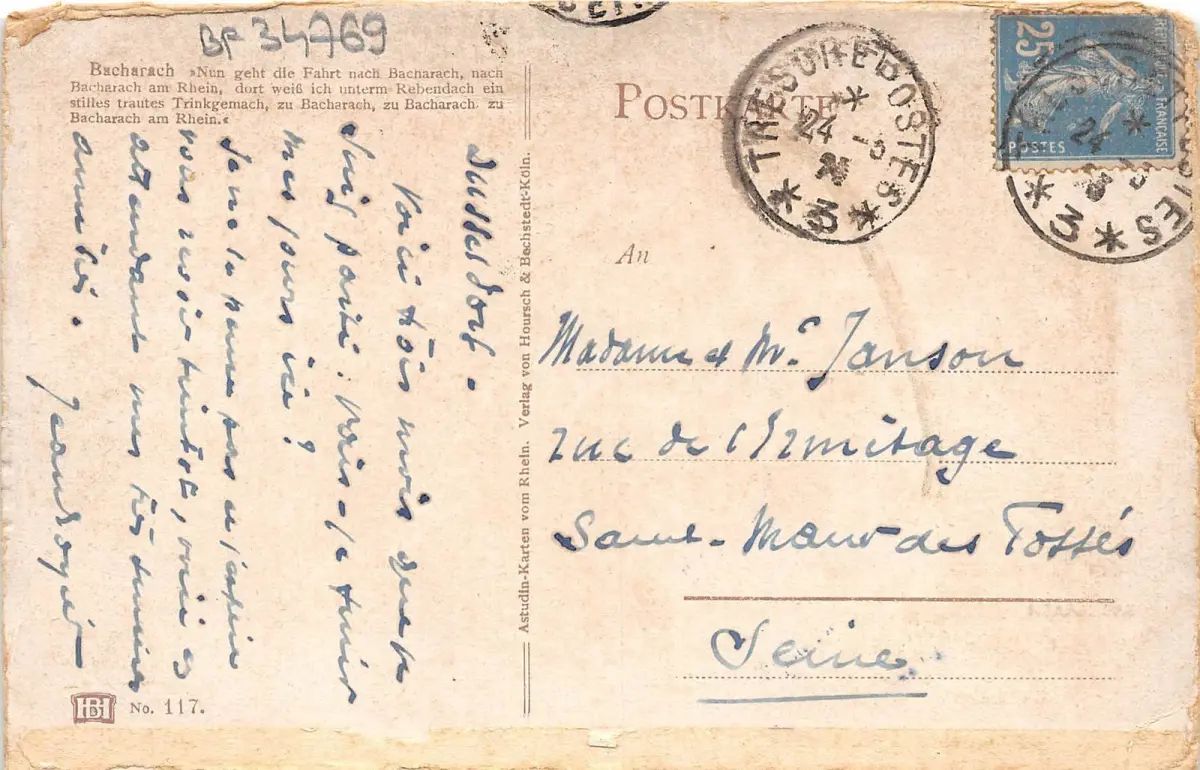 BP 34769
Bacharach »Nun geht die Fahrt nach Bacharach, nach
Bacharach am Rhein, dort weiß ich unterm Rebendach ein
stilles trautes Trinkgemach, zu Bacharach, zu Bacharach zu
Bacharach am Rhein.«
Dusseldorf.
Voici trois mois que je
suis parti. vais-je finir
mes jours ici?
Je ne le pense pas et j'espère
vous revoir bientôt, voici en
attendant mes très bonnes
amitiés.
Astudin-Karten vom Rhein. Verlag von Hoursch & Bechstedt-Köln.
HB
No. 117.
POSTKARTE
TRESOR ET POSTES
24 -5
* 3 *
25
REPUBLIQUE FRANÇAISE
POSTES
24
* 3 *
An
Madame et Mr. Janson
rue de l'Ermitage
Saint-Maur des Fossés
Seine